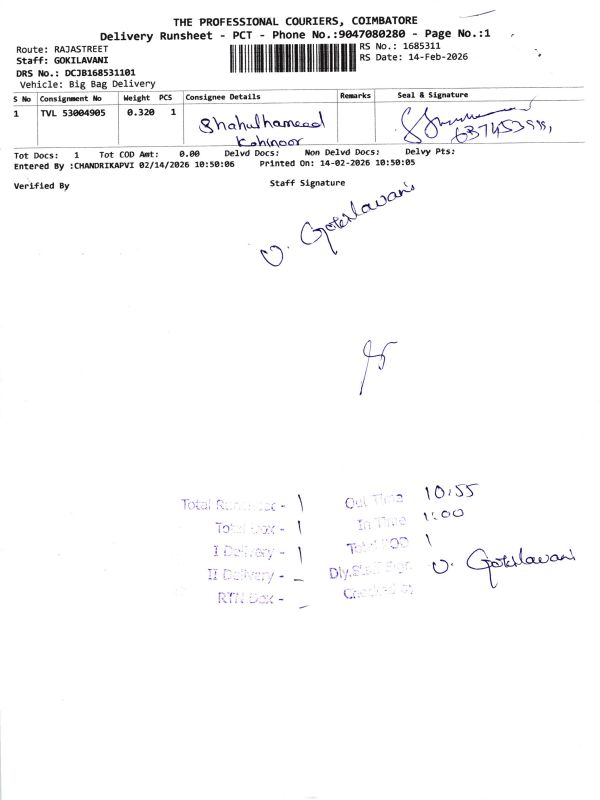 THE PROFESSIONAL COURIERS, COIMBATORE
Delivery Runsheet - PCT - Phone No.:9047080280 - Page No.:1
Route: RAJASTREET
RS No.: 1685311
Staff: GOKILAVANI
RS Date: 14-Feb-2026
DRS No.: DCJB168531101
Vehicle: Big Bag Delivery
S No Consignment No Weight PCS Consignee Details Remarks Seal & Signature
1 TVL 53004905 0.320 1 Shahulhameed
Kohinoor
Tot Docs: 1 Tot COD Amt: 0.00 Delvd Docs: Non Delvd Docs: Delvy Pts:
Entered By :CHANDRIKAPVI 02/14/2026 10:50:06 Printed On: 14-02-2026 10:50:05
Verified By Staff Signature
V. Gokilavani
Total - 1 Out Time 10:55
Total Dox - 1 In Time 1:00
I Delivery - 1 Total POD 1
II Delivery - – Dly.Staff Sign. V. Gokilavani
RTN Dox - – Checked by